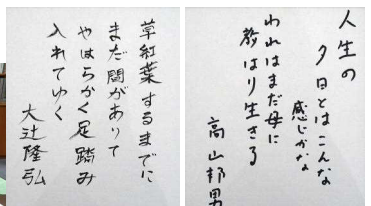 人生の
夕日とはこんな
感じかな
われはまだ母に
教はり生きる
高山邦男
草紅葉するまでに
まだ間がありて
やはらかく足踏み
入れてゆく
大辻隆弘